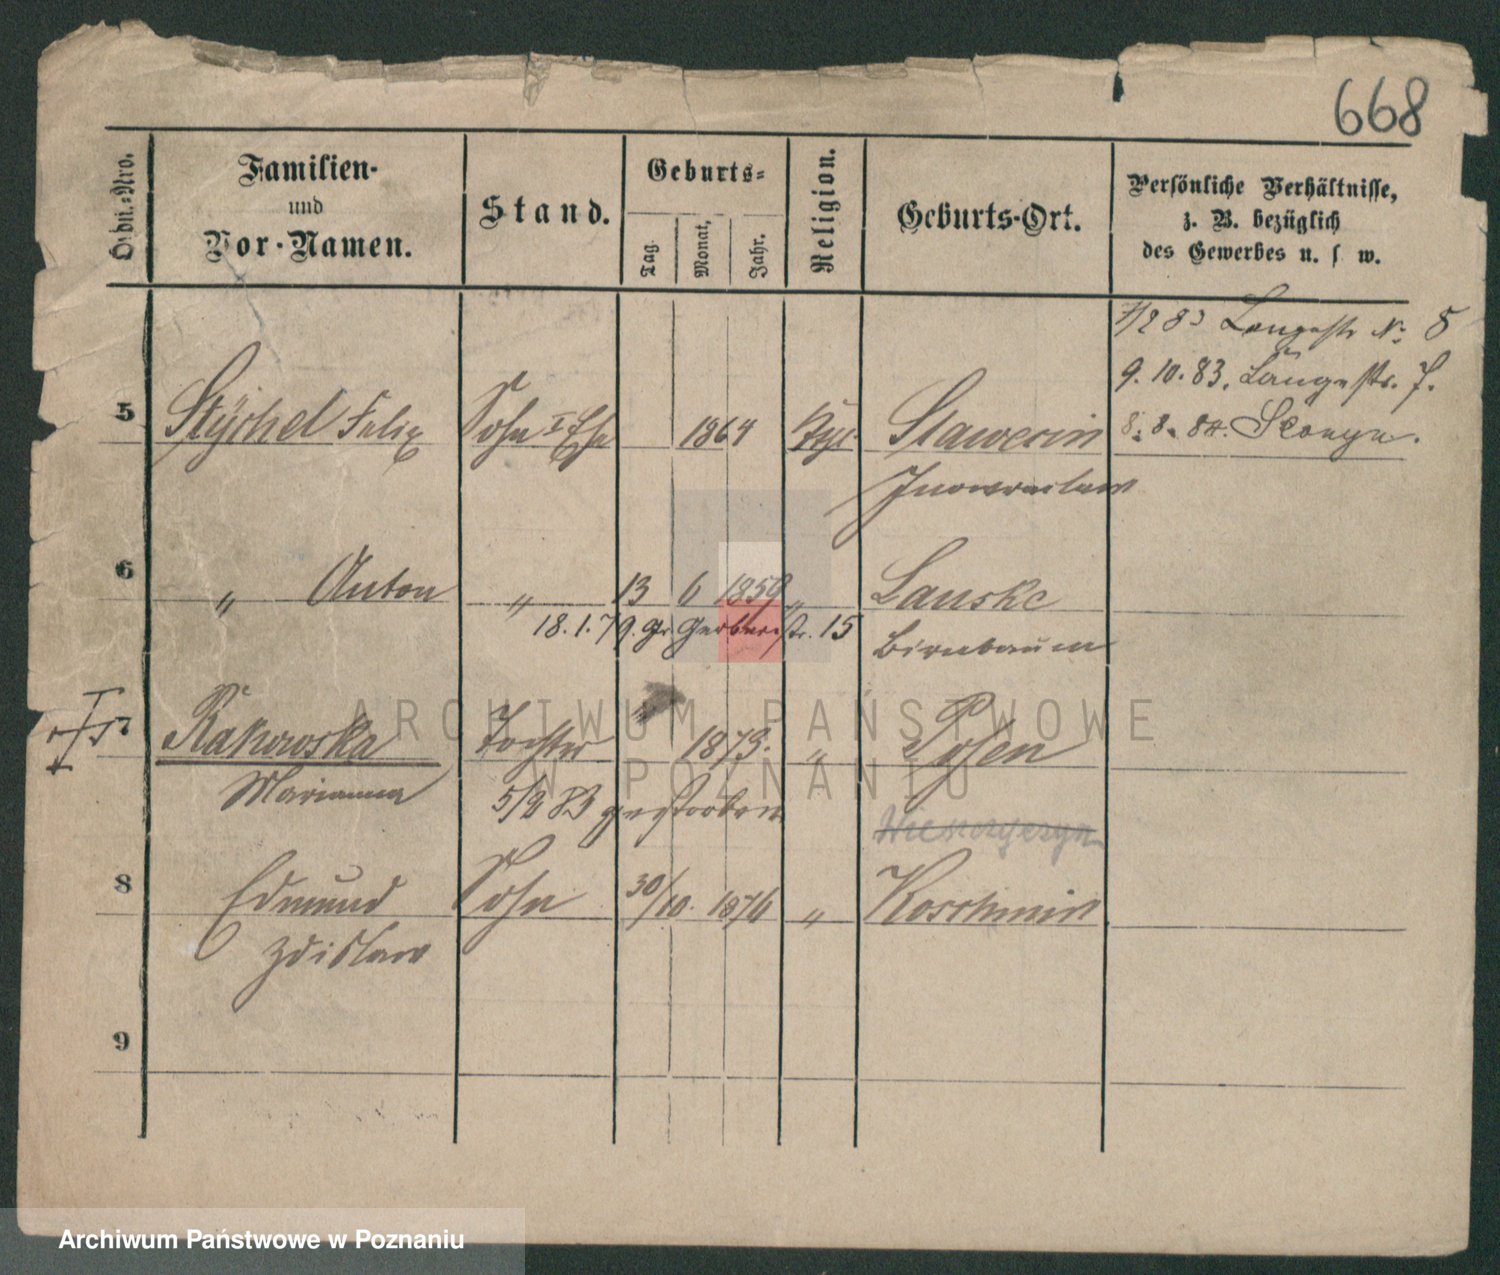 668
Ordn.-Nro.
Familien-
und
Vor-Namen.
Stand.
Geburts-
Tag.
Monat,
Jahr.
Religion.
Geburts-Ort.
Persönliche Verhältnisse,
z. B. bezüglich
des Gewerbes u. s w.
83 Langestr No 8
9.10.83. Langestr. 7.
8.8.84.
5 Felix Sohn I Ehe 1864
Inowraclaw
6 " Anton " 13 6 1859 " Lauske
18.1.79. gr Gerberstr. 15 Birnbaum
Rakowska Tochter 1873. " Posen
Marianna 5/2 83 gestorben
8 Edmund Sohn 30/10. 1876 " Koschmin
Zdislaw
9
ARCHIWUM PAŃSTWOWE
W POZNANIU
Archiwum Państwowe w Poznaniu